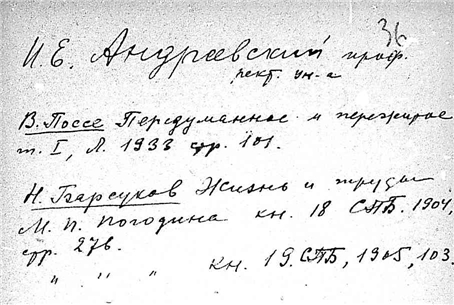 36
И. Е. Андреевский проф.
рект. ун-а
В. Поссе Передуманное и пережитое
т. I, Л. 1933 стр. 101.
Н. Барсуков Жизнь и труды
М. П. Погодина кн. 18 СПБ. 1904,
стр. 276.
" " " кн. 19. СПБ, 1905, 103.